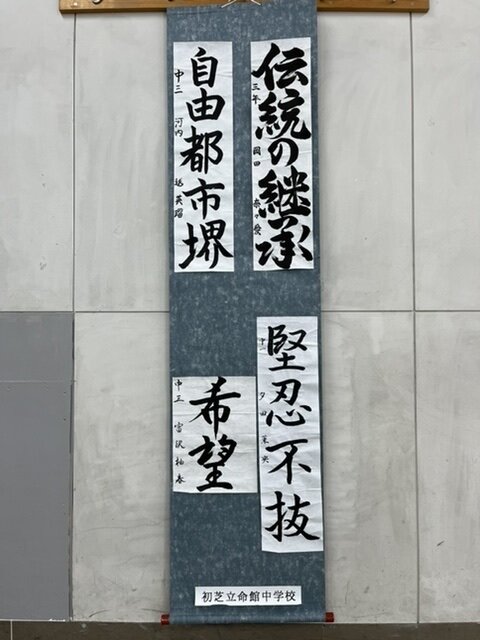 伝統の継承
三年 岡田 奈々愛
自由都市堺
中三 河内 英瑠
堅忍不抜
中一 夕田
希望
中三 宮沢 柚春
初芝立命館中学校